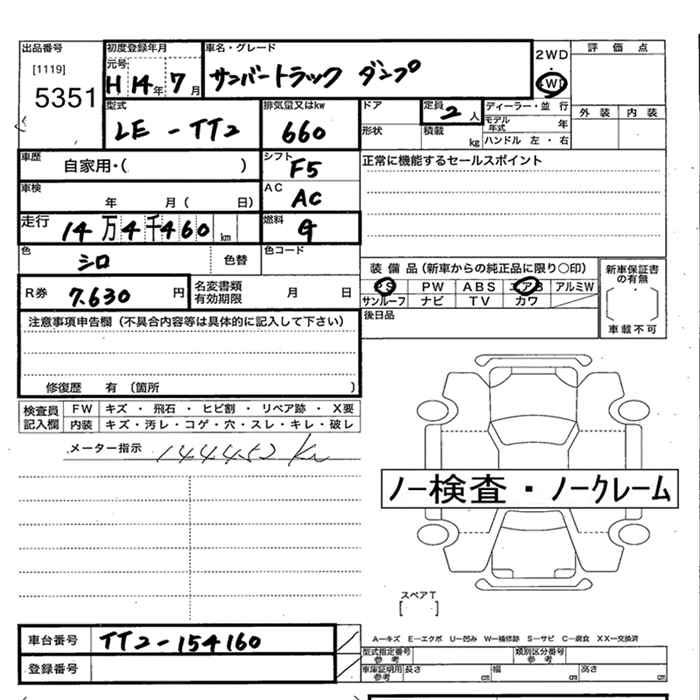 出品番号 初度登録年月 車名・グレード 2WD 評価点
[1119] 元号 ・
5351 H 14年 7月 サンバートラック ダンプ 4WD 外装 内装
型式 排気量又はkw ドア 定員 2人 ディーラー・並行
LE-TT2 660 形状 積載 kg モデル年式 年
ハンドル 左・右
車歴 自家用・( ) シフト F5 正常に機能するセールスポイント
車検 年 月( 日) AC AC
走行 14万4千460km 燃料 G
色 シロ 色替 色コード
装備品(新車からの純正品に限り○印) 新車保証書の有無
R券 7.630円 名変書類有効期限 月 日 PS PW ABS エアB アルミW
サンルーフ ナビ TV カワ
注意事項申告欄(不具合内容等は具体的に記入して下さい) 後日品 車載不可
修復歴 有(箇所 )
検査員 FW キズ・飛石・ヒビ割・リペア跡・X要
記入欄 内装 キズ・汚レ・コゲ・穴・スレ・キレ・破レ
メーター指示 144452 km
ノー検査・ノークレーム
スペアT
[ ]
車台番号 TT2-154160 A―キズ E―エクボ U―凹み W―補修跡 S―サビ C―腐食 XX―交換済
型式指定番号参考 類別区分番号参考
登録番号 車庫証明用参考 長さ cm 幅 cm 高さ cm